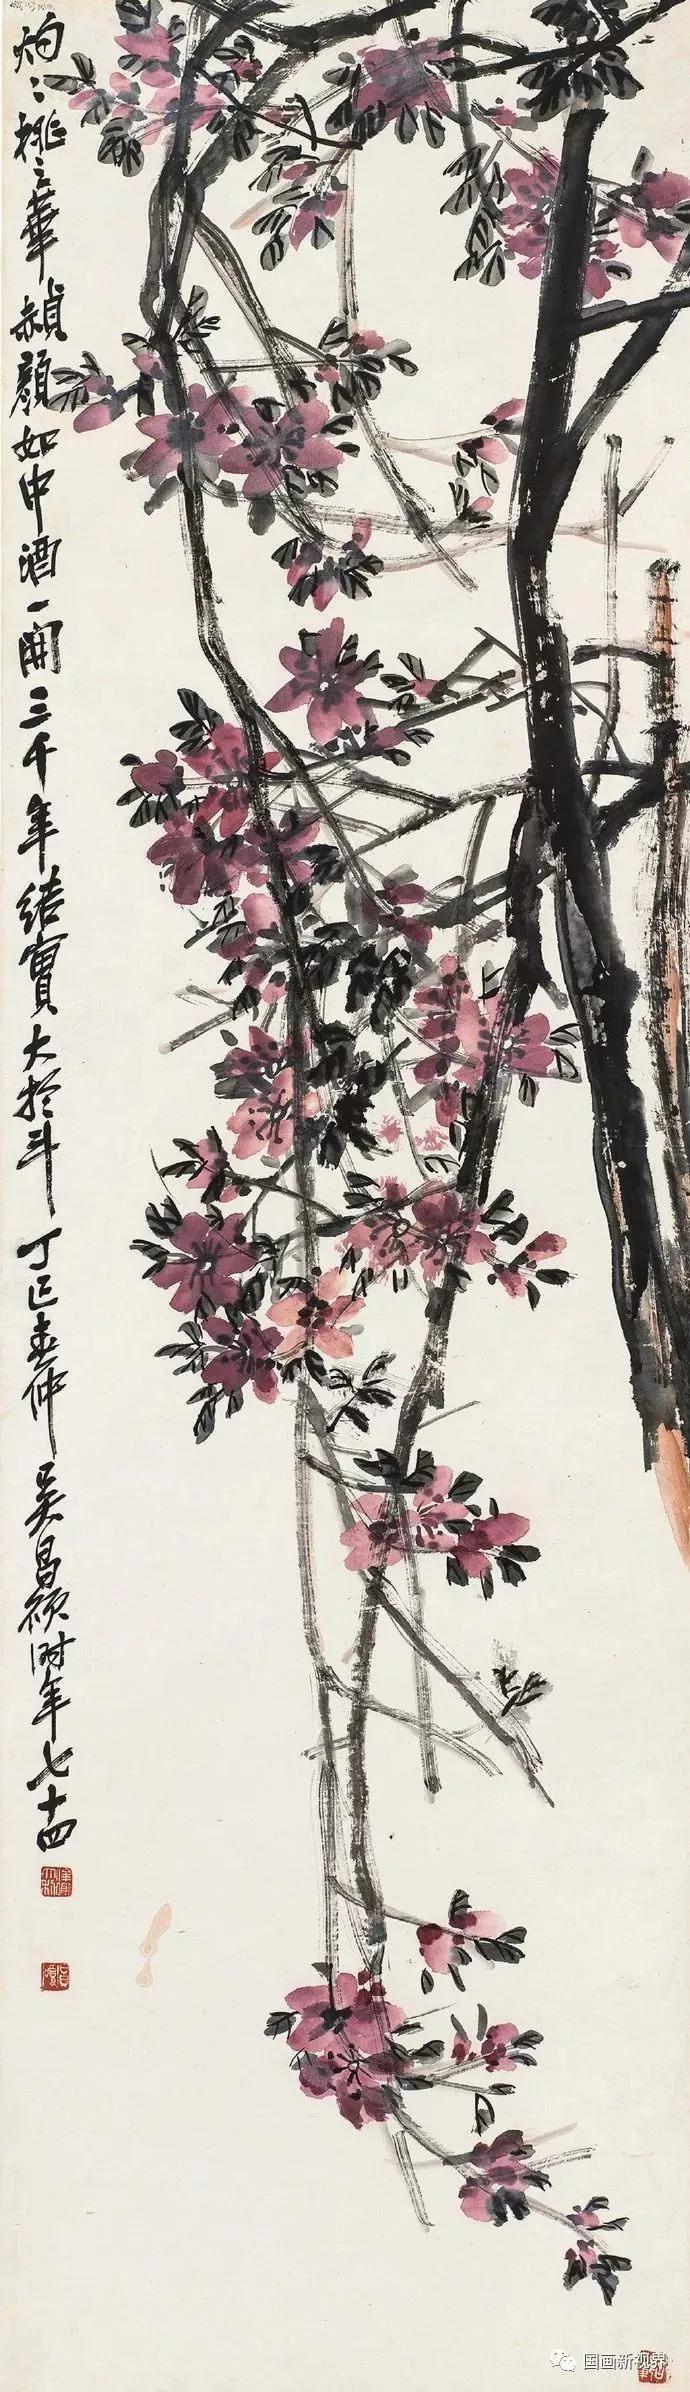 灼〻桃〻華赬顏如中酒一開三千年結實大於斗丁巳春仲吳昌碩時年七十四
国画新视界